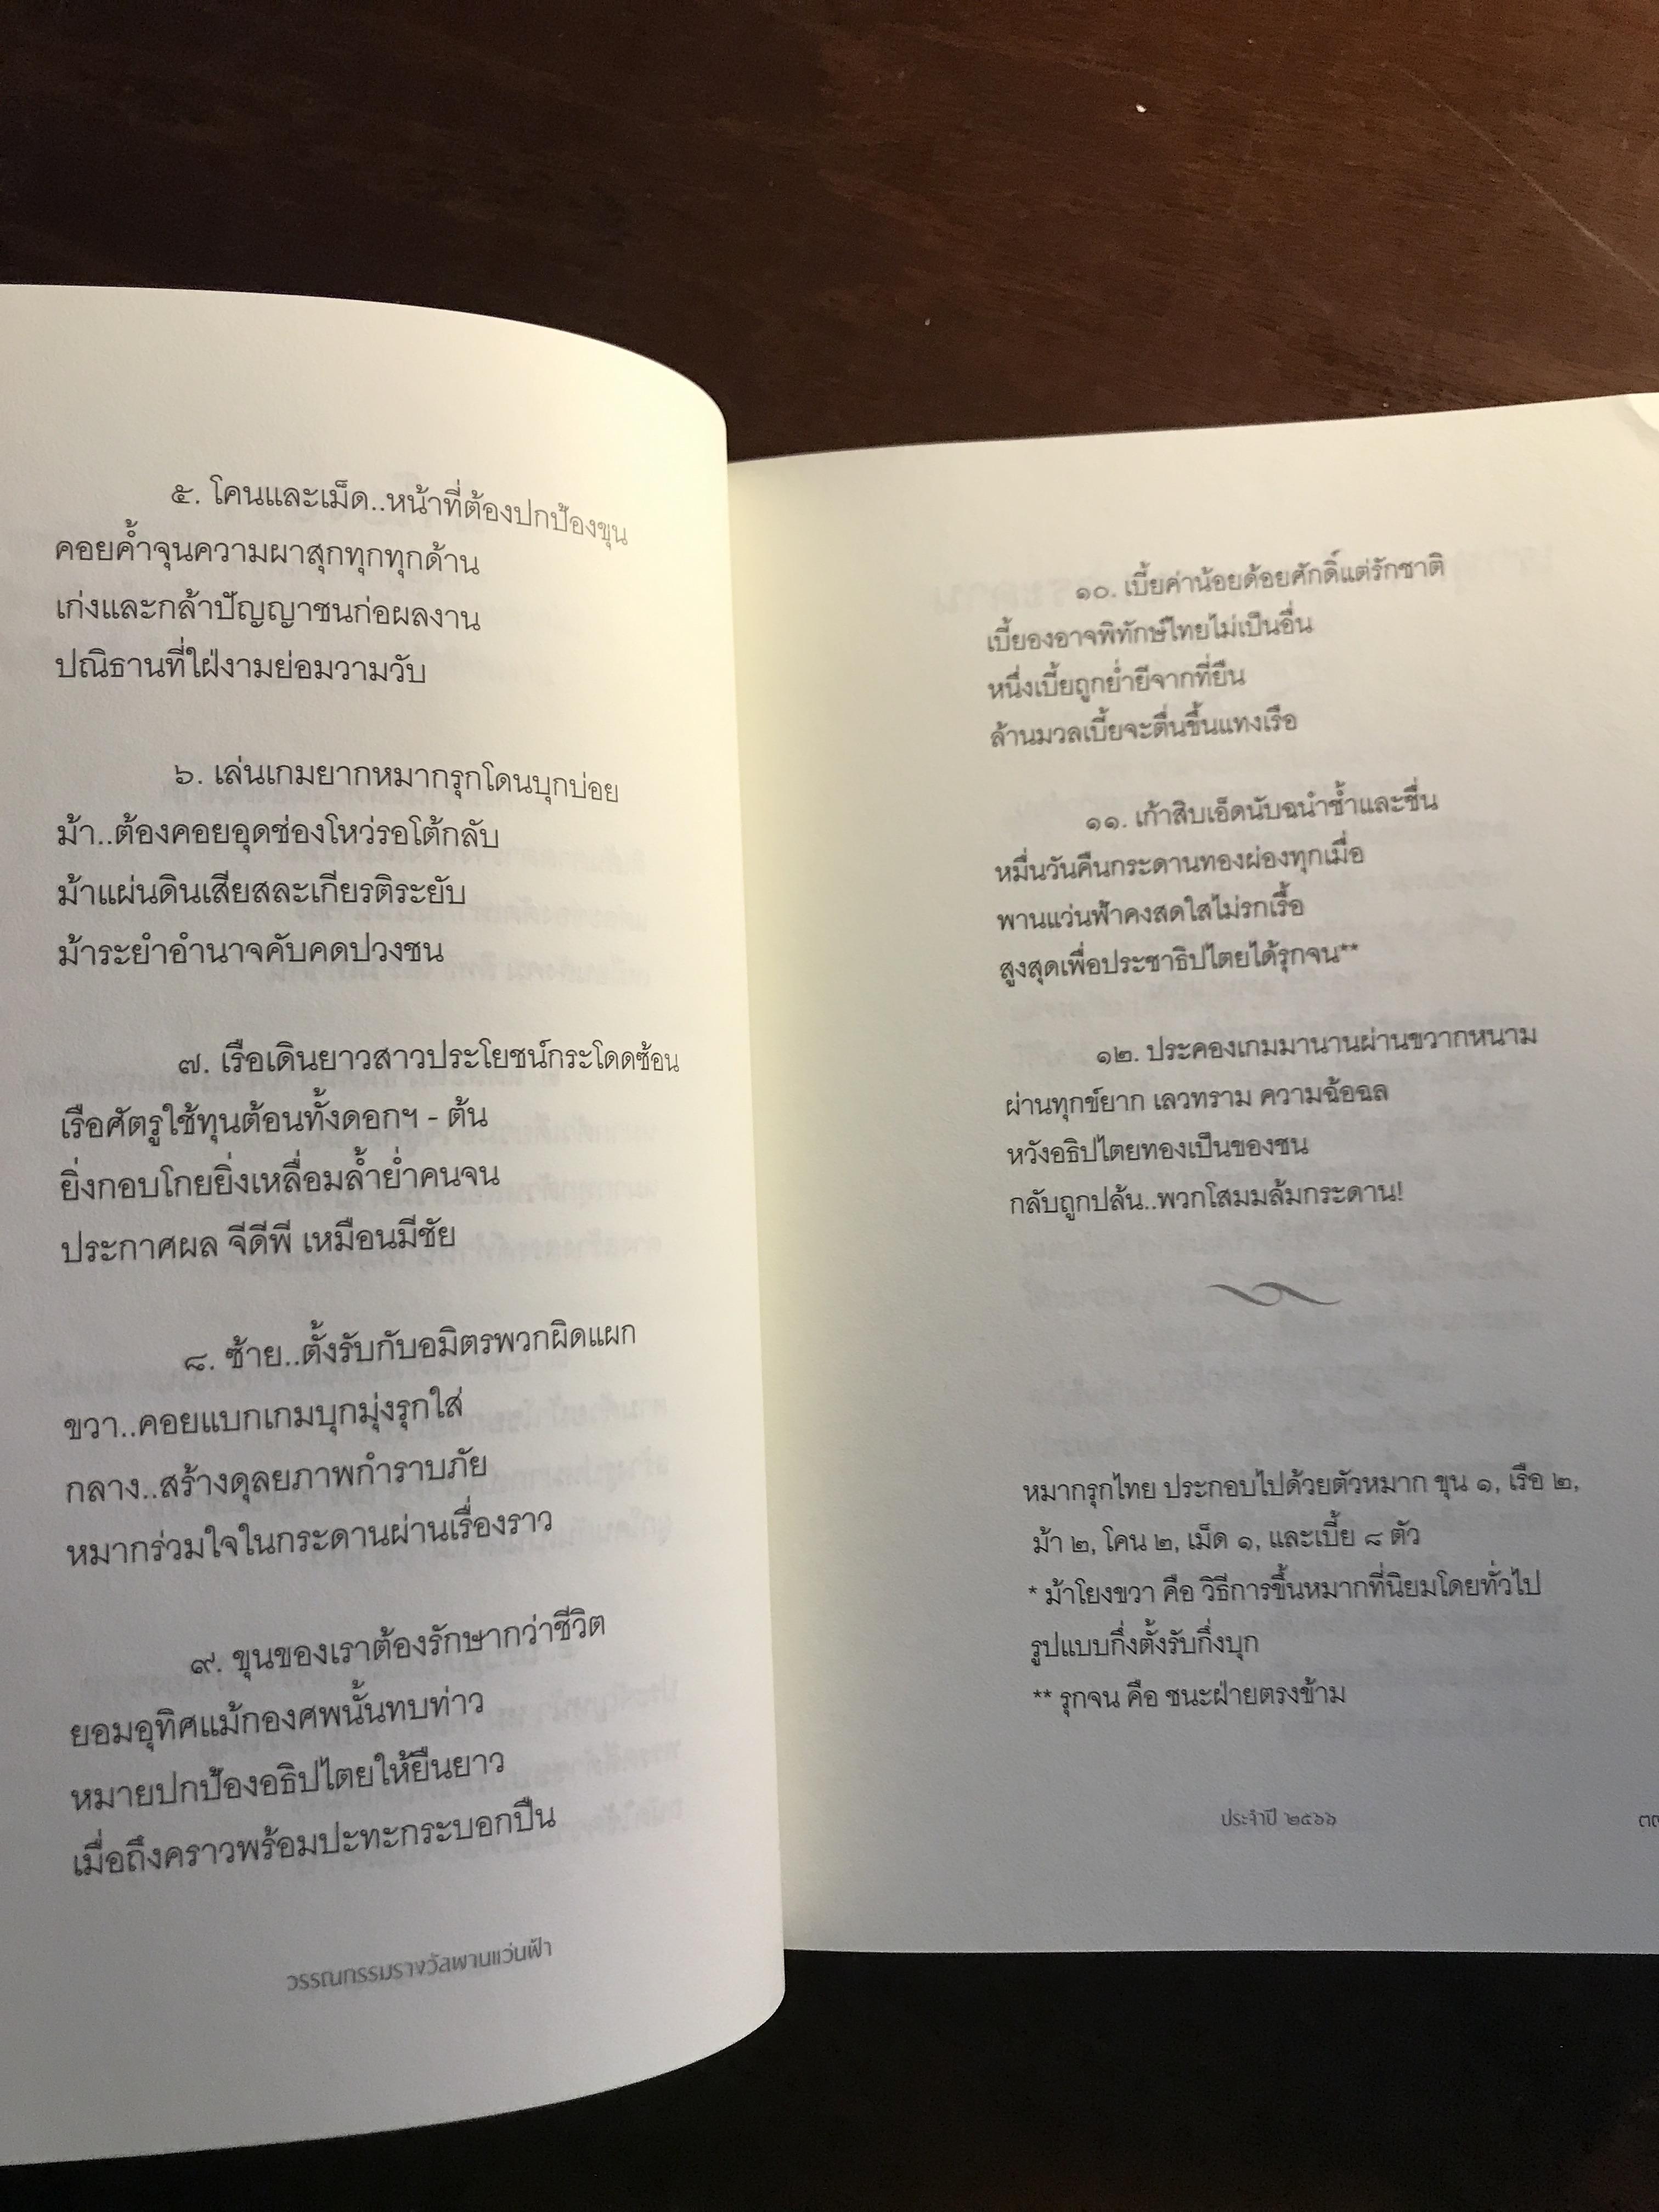 ๕. โคนและเม็ด..หน้าที่ต้องปกป้องขุน
คอยค้ำจุนความผาสุกทุกทุกด้าน
เก่งและกล้าปัญญาชนก่อผลงาน
ปณิธานที่ใฝ่งามย่อมวามวับ
๖. เล่นเกมยากหมากรุกโดนบุกบ่อย
ม้า..ต้องคอยอุดช่องโหว่รอโต้กลับ
ม้าแผ่นดินเสียสละเกียรติระยับ
ม้าระยำอำนาจคับคดปวงชน
๗. เรือเดินยาวสาวประโยชน์กระโดดซ้อน
เรือศัตรูใช้ทุนต้อนทั้งดอกฯ - ต้น
ยิ่งกอบโกยยิ่งเหลื่อมล้ำย่ำคนจน
ประกาศผล จีดีพี เหมือนมีชัย
๘. ซ้าย..ตั้งรับกับอมิตรพวกผิดแผก
ขวา..คอยแบกเกมบุกมุ่งรุกใส่
กลาง..สร้างดุลยภาพกำราบภัย
หมากร่วมใจในกระดานผ่านเรื่องราว
๙. ขุนของเราต้องรักษากว่าชีวิต
ยอมอุทิศแม้กองศพนั้นทบท่าว
หมายปกป้องอธิปไตยให้ยืนยาว
เมื่อถึงคราวพร้อมปะทะกระบอกปืน
วรรณกรรมรางวัลพานแว่นฟ้า
๑๐. เบี้ยค่าน้อยด้อยศักดิ์แต่รักชาติ
เบี้ยองอาจพิทักษ์ไทยไม่เป็นอื่น
หนึ่งเบี้ยถูกย่ำยีจากที่ยืน
ล้านมวลเบี้ยจะตื่นขึ้นแทงเรือ
๑๑. เก้าสิบเอ็ดนับฉนำช้ำและชื่น
หมื่นวันคืนกระดานทองผ่องทุกเมื่อ
พานแว่นฟ้าคงสดใสไม่รกเรื้อ
สูงสุดเพื่อประชาธิปไตยได้รุกจน**
๑๒. ประคองเกมมานานผ่านขวากหนาม
ผ่านทุกข์ยาก เลวทราม ความฉ้อฉล
หวังอธิปไตยทองเป็นของชน
กลับถูกปล้น..พวกโสมมล้มกระดาน!
หมากรุกไทย ประกอบไปด้วยตัวหมาก ขุน ๑, เรือ ๒,
ม้า ๒, โคน ๒, เม็ด ๑, และเบี้ย ๘ ตัว
* ม้าโยงขวา คือ วิธีการขึ้นหมากที่นิยมโดยทั่วไป
รูปแบบกึ่งตั้งรับกึ่งบุก
** รุกจน คือ ชนะฝ่ายตรงข้าม
ประจำปี ๒๕๖๖